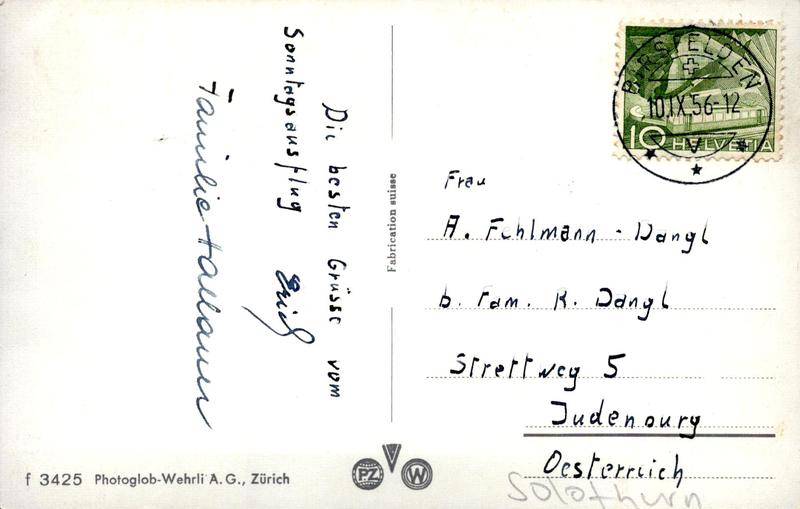 Die besten Grüsse vom
Sonntagsausflug Erich
Familie Hallauer
Fabrication suisse
BIRSFELDEN
10.IX.56-12
V
10 HELVETIA
Frau
A. Fehlmann - Dangl
b. Fam. K. Dangl
Strettweg 5
Judenburg
Oesterreich
Solothurn
f 3425 Photoglob-Wehrli A.G., Zürich
PZ V W